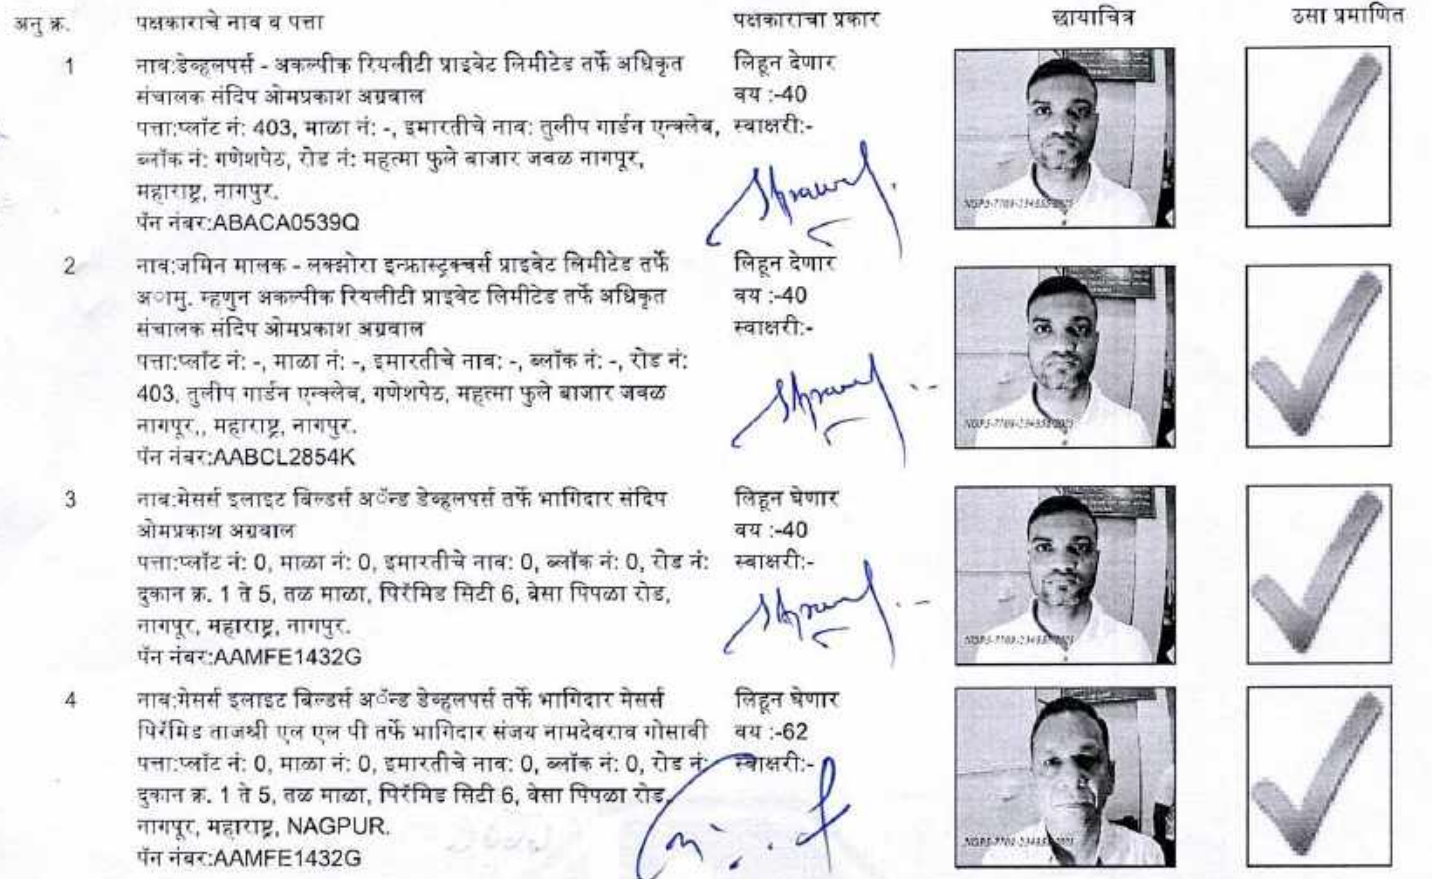 अनु क्र. पक्षकाराचे नाव व पत्ता पक्षकाराचा प्रकार छायाचित्र ठसा प्रमाणित
1 नाव:डेव्हलपर्स - अकल्पीक रियलीटी प्राइवेट लिमीटेड तर्फे अधिकृत लिहून देणार
संचालक संदिप ओमप्रकाश अग्रवाल वय :-40
पत्ता:प्लॉट नं: 403, माळा नं: -, इमारतीचे नाव: तुलीप गार्डन एन्क्लेव, स्वाक्षरी:-
ब्लॉक नं: गणेशपेठ, रोड नं: महत्मा फुले बाजार जवळ नागपूर,
महाराष्ट्र, नागपुर.
पॅन नंबर:ABACA0539Q
2 नाव:जमिन मालक - लक्झोरा इन्फ्रास्ट्रक्चर्स प्राइवेट लिमीटेड तर्फे लिहून देणार
अामु. म्हणुन अकल्पीक रियलीटी प्राइवेट लिमीटेड तर्फे अधिकृत वय :-40
संचालक संदिप ओमप्रकाश अग्रवाल स्वाक्षरी:-
पत्ता:प्लॉट नं: -, माळा नं: -, इमारतीचे नाव: -, ब्लॉक नं: -, रोड नं:
403, तुलीप गार्डन एन्क्लेव, गणेशपेठ, महत्मा फुले बाजार जवळ
नागपूर,, महाराष्ट्र, नागपुर.
पॅन नंबर:AABCL2854K
3 नाव:मेसर्स इलाइट बिल्डर्स अॅन्ड डेव्हलपर्स तर्फे भागिदार संदिप लिहून घेणार
ओमप्रकाश अग्रवाल वय :-40
पत्ता:प्लॉट नं: 0, माळा नं: 0, इमारतीचे नाव: 0, ब्लॉक नं: 0, रोड नं: स्वाक्षरी:-
दुकान क्र. 1 ते 5, तळ माळा, पिरॅमिड सिटी 6, बेसा पिपळा रोड,
नागपूर, महाराष्ट्र, नागपुर.
पॅन नंबर:AAMFE1432G
4 नाव:मेसर्स इलाइट बिल्डर्स अॅन्ड डेव्हलपर्स तर्फे भागिदार मेसर्स लिहून घेणार
पिरॅमिड ताजश्री एल एल पी तर्फे भागिदार संजय नामदेवराव गोसावी वय :-62
पत्ता:प्लॉट नं: 0, माळा नं: 0, इमारतीचे नाव: 0, ब्लॉक नं: 0, रोड नं: स्वाक्षरी:-
दुकान क्र. 1 ते 5, तळ माळा, पिरॅमिड सिटी 6, बेसा पिपळा रोड,
नागपूर, महाराष्ट्र, NAGPUR.
पॅन नंबर:AAMFE1432G